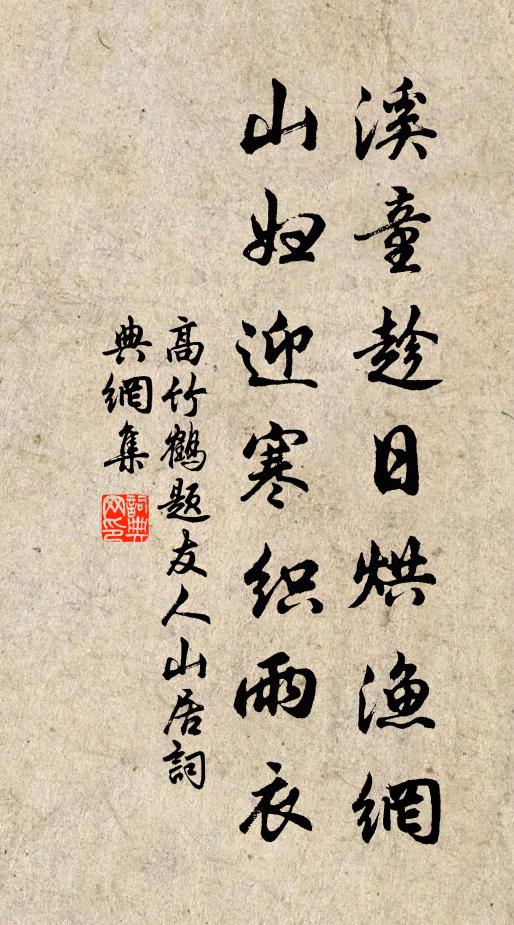 溪童趁日烘渔網
山妇迎寒织雨衣
高竹鶴题友人山居詞
典網集
詞典网印